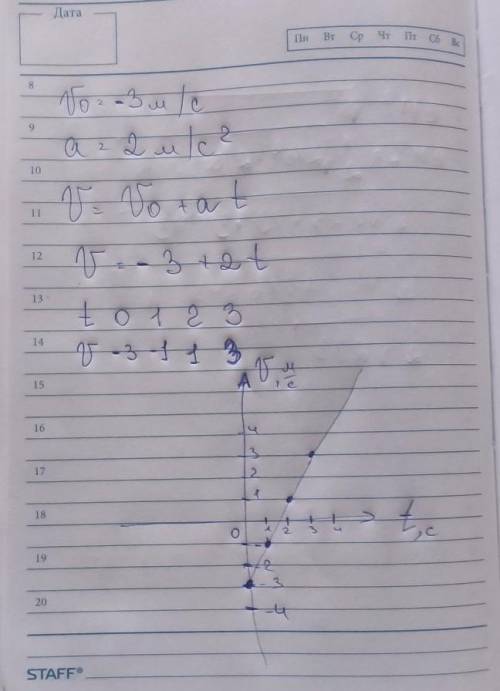 Дата
Пн Вт Ср Чт Пт Сб Вс
8
V₀ = -3 м/с
9
a = 2 м/с²
10
11
V = V₀ + a t
12
V = -3 + 2 t
13
t 0 1 2 3
14
V -3 -1 1 3
V, м/с
15
16
4
3
17
2
1
18
0 1 2 3 4 t, с
19
-2
-3
20
-4
STAFF®